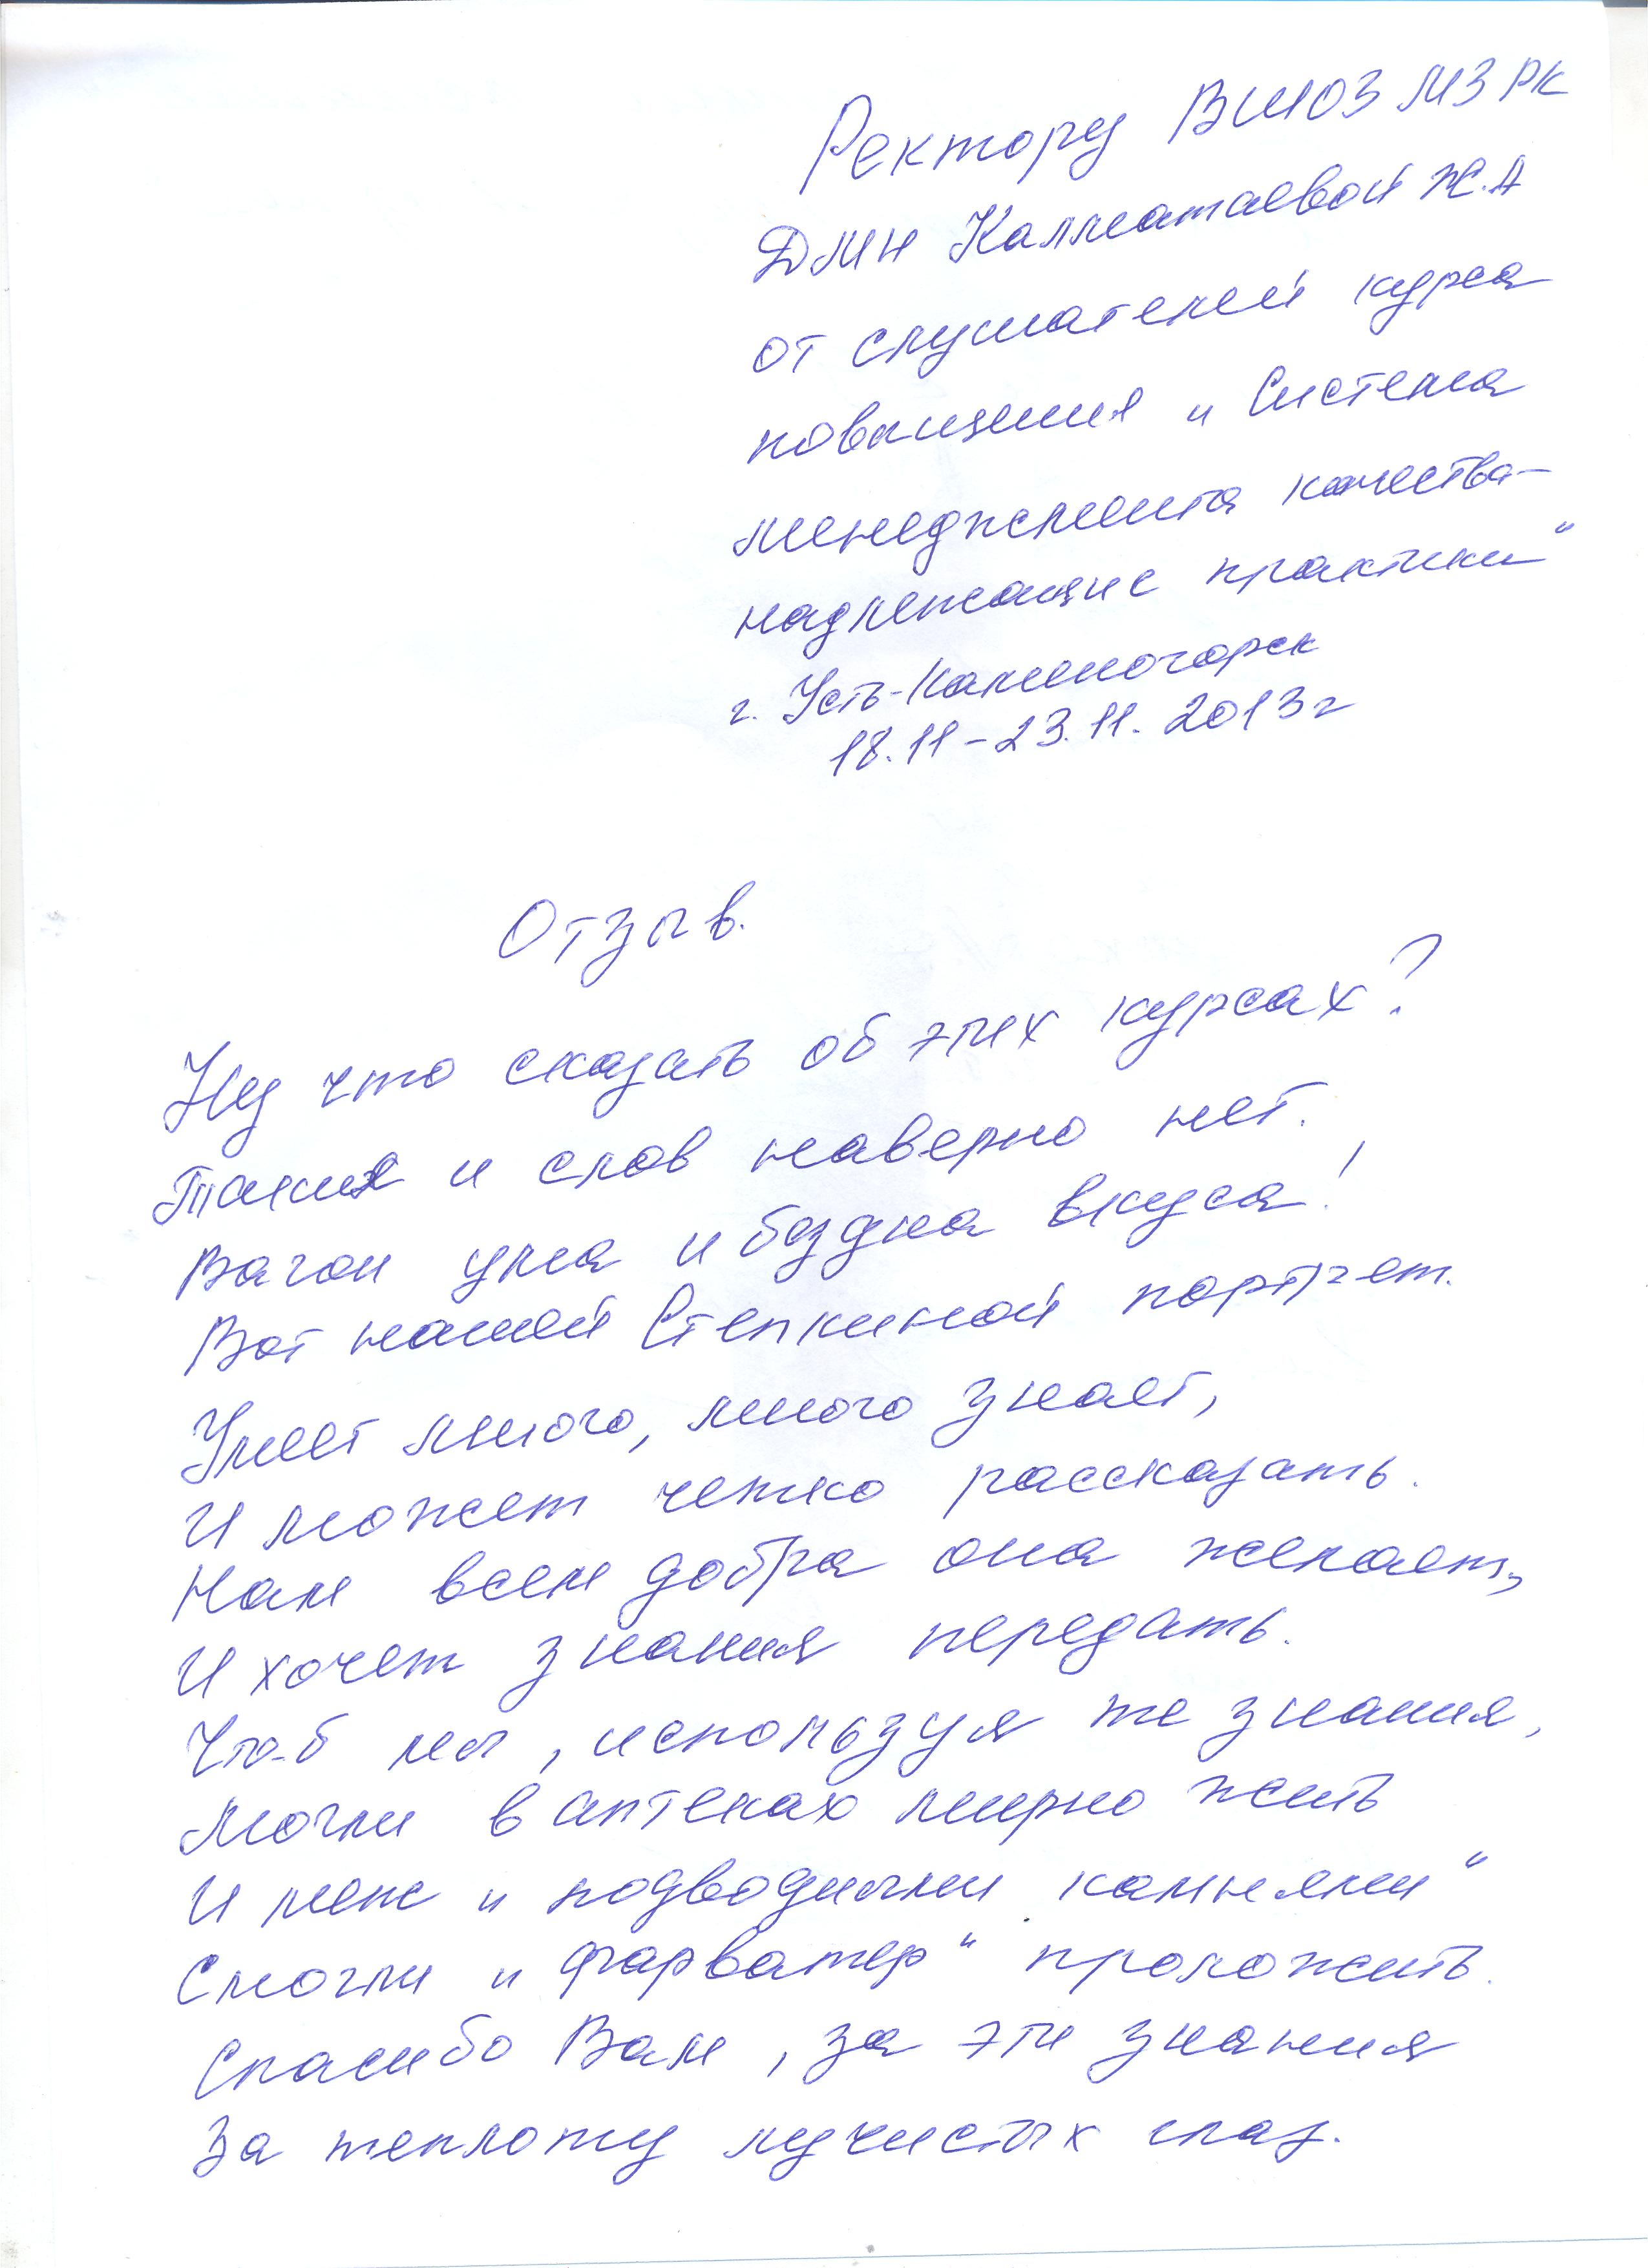 Ректору ВШОЗ МЗ РК
ДМН Калматаевой Ж.А
от слушателей курса
повышения „Система
менеджмента качества-
надлежащие практики“
г. Усть-Каменогорск
18.11-23.11.2013г
Отзыв.
Ну что сказать об этих курсах?
Таких и слов наверно нет.
Вагон ума и бездна вкуса!
Вот нашей Степкиной портрет.
Умеет много, много знает,
И может четко рассказать.
Нам всем добра она желает,
И хочет знания передать.
Что-б мы, используя те знания,
Могли в аптеках мирно жить
И меж „подводными камнями“
Смогли „фарватер“ проложить.
Спасибо Вам, за эти знания
За теплоту лучистых глаз.